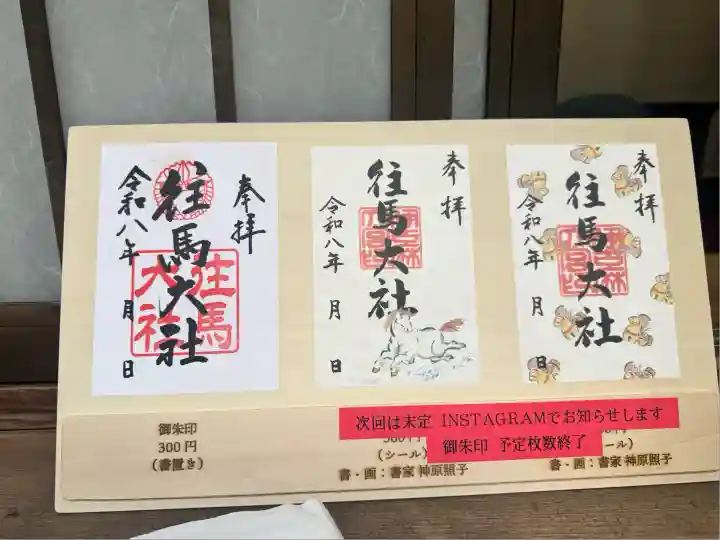 奉拝
往馬大社
令和八年 月 日
往馬
大社
奉拝
往馬大社
令和八年 月 日
奉拝
往馬大社
令和八年 月 日
御朱印
300円
(書置き)
次回は末定 INSTAGRAMでお知らせします
御朱印 予定枚数終了
(シール)
書・画：書家 神原照子
ール)
書・画：書家 神原照子